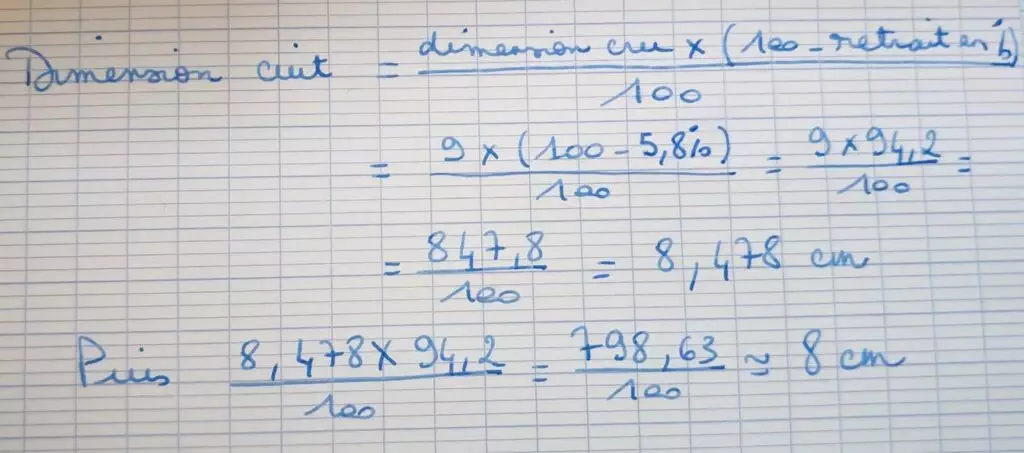 Dimension cuit = dimension cru × (100 - retrait en %) / 100
= 9 × (100 - 5,8%) / 100 = 9 × 94,2 / 100 =
= 847,8 / 100 = 8,478 cm
Puis 8,478 × 94,2 / 100 = 798,63 / 100 ≃ 8 cm